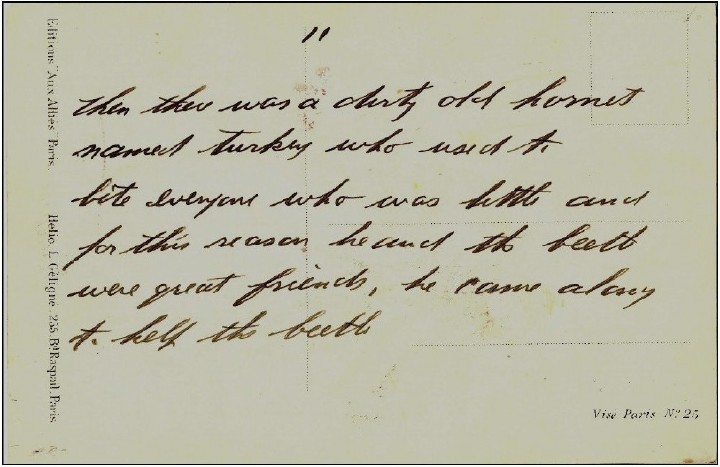 11
then ther was a dirty old hornet
named turkey who used to
bite everyone who was little and
for this reason he and the beetle
were great friends, he came along
to help the beetle
Editions "Aux Alliés" Paris.
Hélio. L. Géligné, 255, Bd Raspail, Paris
Visé Paris No 25